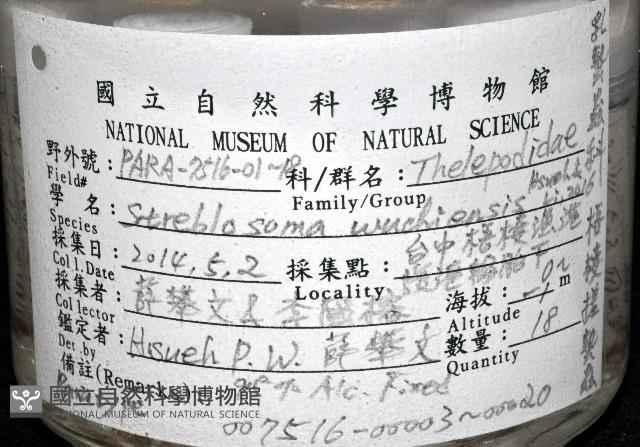 國立自然科學博物館
NATIONAL MUSEUM OF NATURAL SCIENCE
野外號: PARA-7516-01~18 科/群名: Thelepodidae
Field# Family/Group
學 名: Streblosoma wuchiensis Hsueh &
Species
採集日: 2014.5.2 採集點: 台中梧棲漁港
Coll.Date Locality
採集者: 薛攀文 & 李 海拔: 0~-1 m
Collector Altitude
鑑定者: Hsueh P.W. 薛攀文 數量: 18
Det.by Quantity
備註(Remark) Alc. Fixed
007516-00003~00020
國立自然科學博物館
NATIONAL MUSEUM OF NATURAL SCIENCE